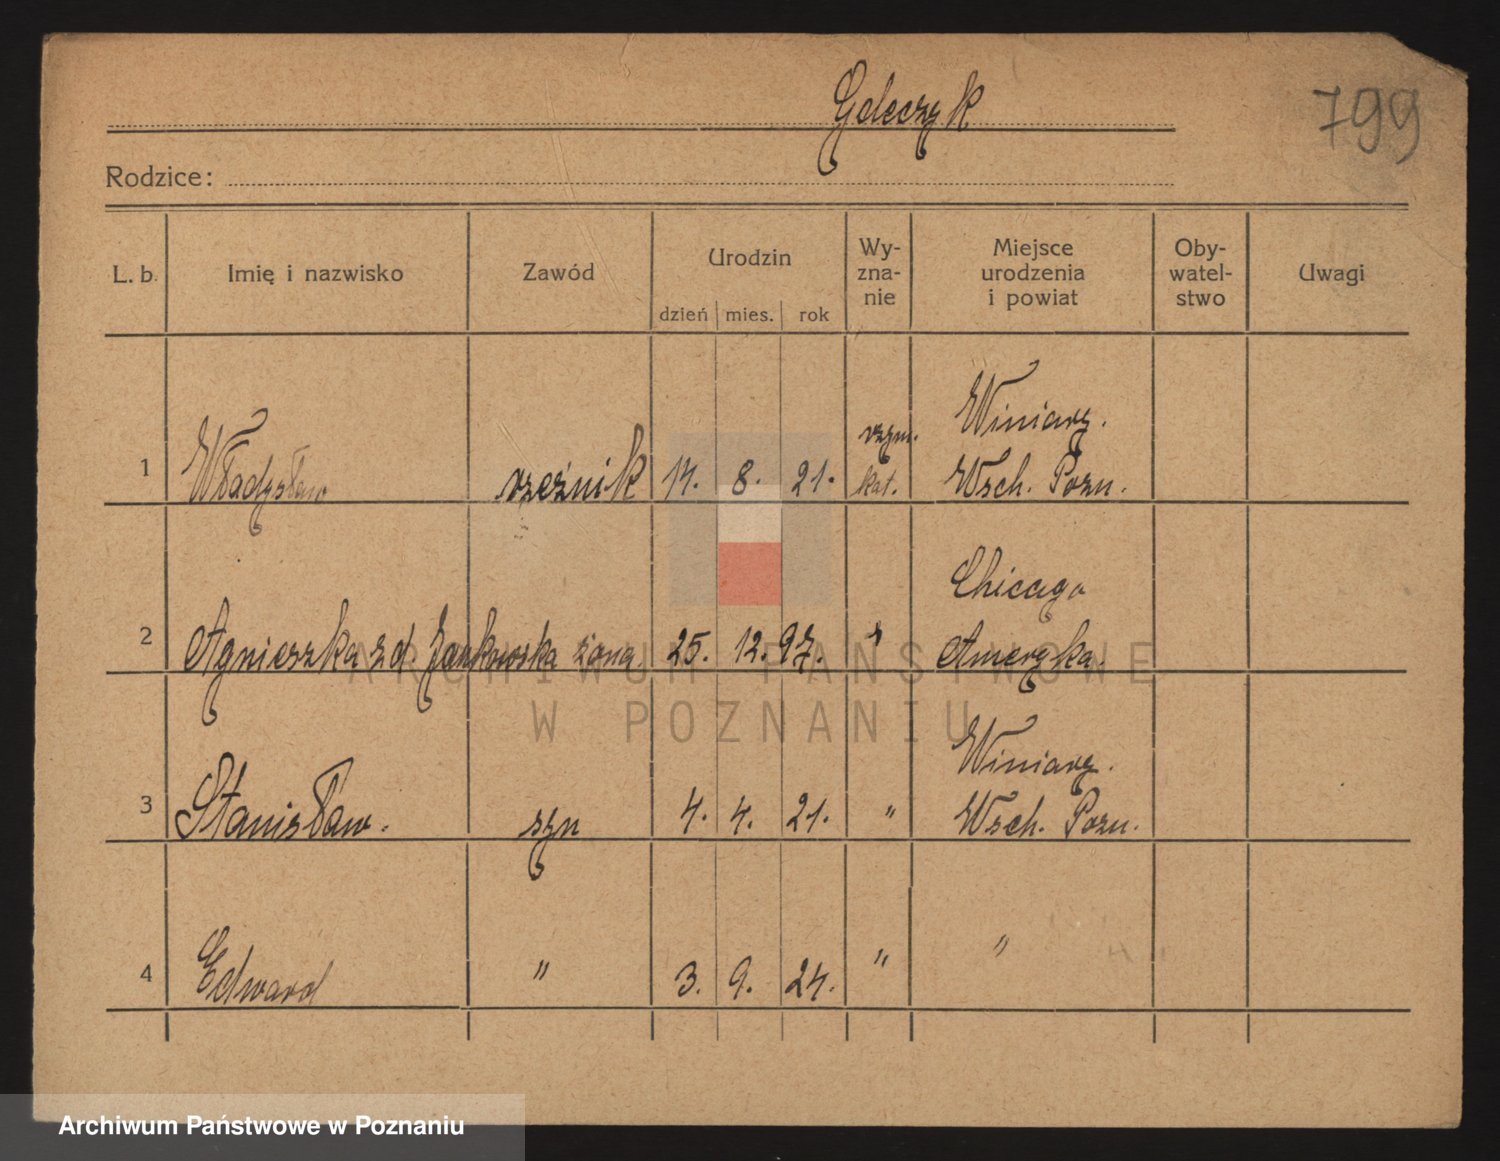 Gdeczyk
799
Rodzice:
L. b. Imię i nazwisko Zawód Urodzin dzień mies. rok Wy-zna-nie Miejsce urodzenia i powiat Oby-watel-stwo Uwagi
Winiary.
rzym.
1 Władysław rzeźnik 8. 21. kat. Wsch. Pozn.
Chicago
2 Agnieszka z d. Jankowska żona 25. 12. 97. " Ameryka.
Winiary.
3 Stanisław. syn 4. 4. 21. " Wsch. Pozn.
4 Edward " 3. 9. 24. " "
ARCHIWUM PAŃSTWOWE
W POZNANIU
Archiwum Państwowe w Poznaniu